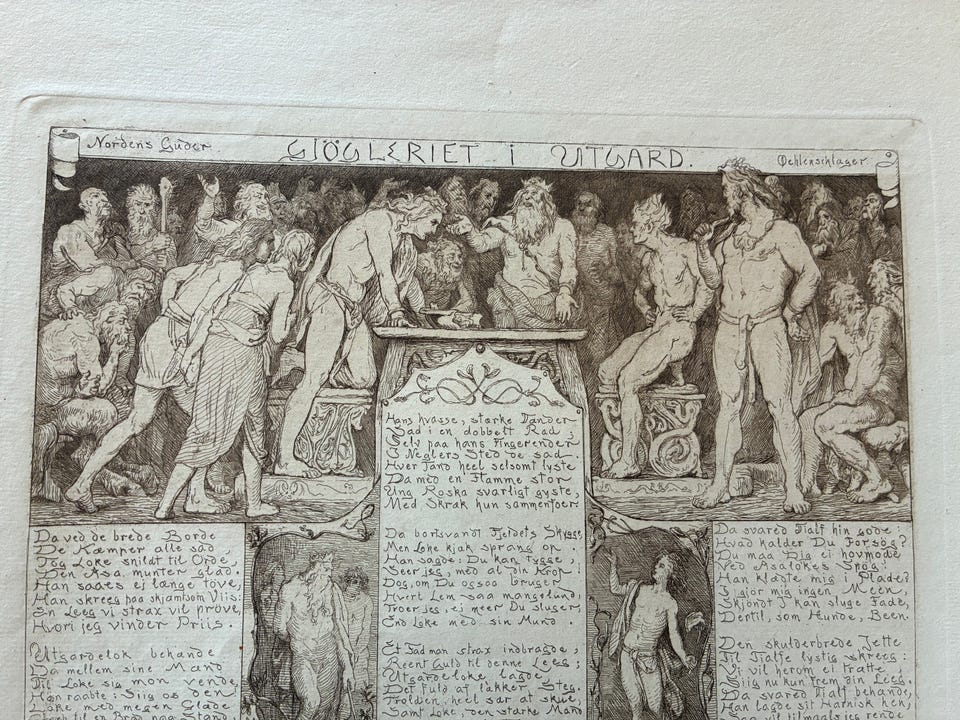 Nordens Guder.
GJÖGLERIET I UTGARD.
Oehlenschlager
Da ved de brede Borde
De Kæmper alle sad,
Tog Loke snildt til Orde,
Den Asa munter glad.
Han sagde: ej længe töve,
Han skreeg paa skjæmtsom Viis:
En Leeg vi strax vil pröve,
Hvori jeg vinder Priis.
Utgardelok behænde
Da mellem sine Mænd
Til Loke sig mon vende,
Han raabte: Siig os den
Loke med megen Glæde
til en Brad paa Stand,
Hans hvasse, stærke Tænder
Sad i en dobbelt Rad;
Selv paa hans Fingerender
I Neglers Sted de sad.
Hver Tand heel selsomt lyste
Da med en Flamme stor
Ung Roska svarligt gyste,
Med Skræk hun sammenfoer.
Da bortsvandt Fjeldets Skygge.
Men Loke kjæk sprang op.
Han sagde: Du kan tygge,
Seer jeg, med al din Krop!
Dog, om Du ogsaa bruger
Hvert Lem saa mangelund,
Troer jeg, ej meer Du sluger,
End Loke med sin Mund.
Et Fad man strax indbragde,
Reent Guld til denne Leeg;
Utgardeloke lagde
Det fuld af lækker Steg.
Trolden, heel sær at skue,
Samt Loke, den stærke Mand
Da svared Tialf hin gode:
Hvad kalder Du Forsög?
Du maa Dig ei hovmode
Ved Asalokes Spög!
Han klædte mig i Plade?
I gjör mig ingen Meen,
Skjöndt I kan sluge Fade,
Dertil, som Hunde, Been.
Den skulderbrede Jette
Til Tialfe lystig skreeg:
Vi vil herom ei trætte
Siig nu kun frem din Leeg.
Da svared Tialf behænde,
Han lagde sit Harnisk hen,